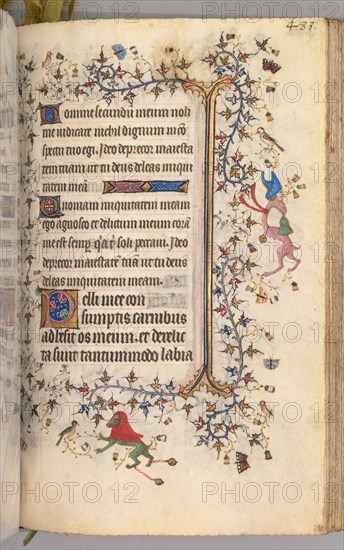 481
Domine secundum meum noli
me iudicare nichil dignum in cō
spectu tuo egi. Ideo deprecor maiesta
tem tuam ut tu deus deleas iniqui
tatem meā
Quoniam iniquitatem meam
ego agnosco et delictum meum corā
me est semper q̄ci t̄ soli peccaui. Ideo
deprecor maiestatē tuā ut tu deus
deleas iniquitatem meam.
Pelli mee con
sumptis carnibus
adhesit os meum. et derelic
ta sunt tantummodo labia
PHOTO12